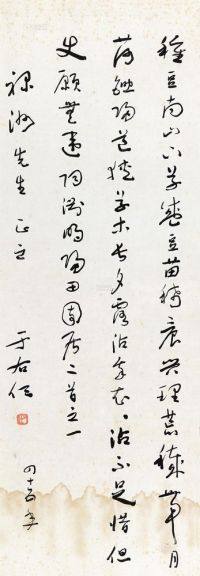 種豆南山下草盛豆苗稀晨興理荒穢帶月
荷鋤歸道狹草木長夕露沾我衣々沾不足惜但
使願無違陶淵明歸田園居二首之一
先生正之 于右任